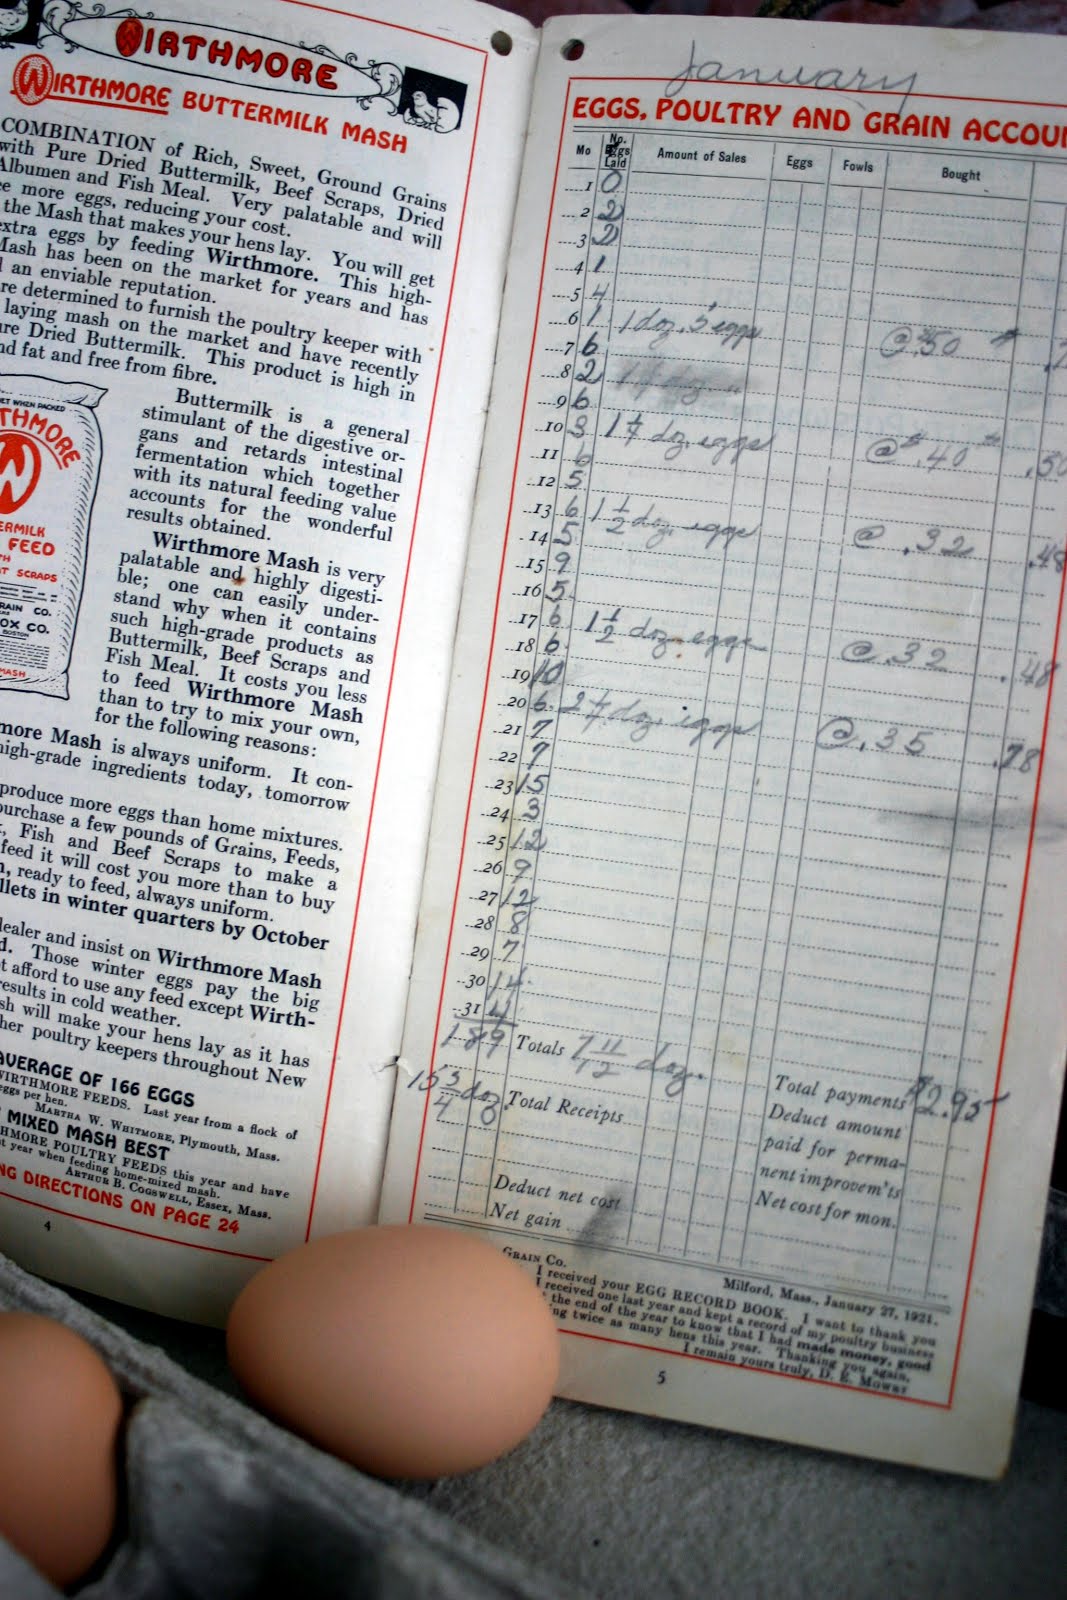 WIRTHMORE
WIRTHMORE BUTTERMILK MASH
COMBINATION of Rich, Sweet, Ground Grains
with Pure Dried Buttermilk, Beef Scraps, Dried
Albumen and Fish Meal. Very palatable and will
more eggs, reducing your cost.
the Mash that makes your hens lay. You will get
extra eggs by feeding Wirthmore. This high-
Mash has been on the market for years and has
an enviable reputation.
re determined to furnish the poultry keeper with
laying mash on the market and have recently
ure Dried Buttermilk. This product is high in
nd fat and free from fibre.
Buttermilk is a general
stimulant of the digestive or-
gans and retards intestinal
fermentation which together
with its natural feeding value
accounts for the wonderful
results obtained.
Wirthmore Mash is very
palatable and highly digesti-
ble; one can easily under-
stand why when it contains
such high-grade products as
Buttermilk, Beef Scraps and
Fish Meal. It costs you less
to feed Wirthmore Mash
than to try to mix your own,
for the following reasons:
more Mash is always uniform. It con-
high-grade ingredients today, tomorrow
produce more eggs than home mixtures.
purchase a few pounds of Grains, Feeds,
Fish and Beef Scraps to make a
feed it will cost you more than to buy
ready to feed, always uniform.
llets in winter quarters by October
dealer and insist on Wirthmore Mash
d. Those winter eggs pay the big
t afford to use any feed except Wirth-
results in cold weather.
sh will make your hens lay as it has
her poultry keepers throughout New
AVERAGE OF 166 EGGS
WIRTHMORE FEEDS. Last year from a flock of
eggs per hen.
MARTHA W. WHITMORE, Plymouth, Mass.
MIXED MASH BEST
THMORE POULTRY FEEDS this year and have
t year when feeding home-mixed mash.
ARTHUR B. COGSWELL, Essex, Mass.
NG DIRECTIONS ON PAGE 24
4
THMORE
ERMILK
FEED
T SCRAPS
RAIN CO.
OX CO.
BOSTON
MASH
January
EGGS, POULTRY AND GRAIN ACCOUN
Mo No. Eggs Laid Amount of Sales Eggs Fowls Bought
1 0
2 2
3 2
4 1
5 4
6 1 1 doz. 5 eggs @ .50
7 6
8 2
9 6
10 3 1 1/4 doz eggs @ .40 .50
11 6
12 5
13 6 1 1/2 doz. eggs @ .32 .48
14 5
15 9
16 5
17 6 1 1/2 doz. eggs @ .32 .48
18 6
19 10
20 6 2 1/4 doz. eggs @ .35 .78
21 7
22 7
23 15
24 3
25 12
26 9
27 12
28 8
29 7
30 14
31 4
189 Totals 7 11/12 doz.
15 3/4 doz. Total Receipts
Total payments $2.95
Deduct amount
paid for perma-
nent improvem'ts
Net cost for mon.
Deduct net cost
Net gain
GRAIN CO.
Milford, Mass., January 27, 1921.
I received your EGG RECORD BOOK. I want to thank you
I received one last year and kept a record of my poultry business
the end of the year to know that I had made money, good
ing twice as many hens this year. Thanking you again,
I remain yours truly, D. E. MOWRY
5